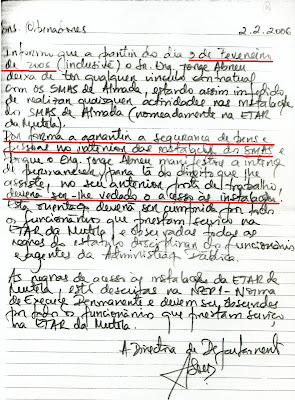 2.2.2006
Informo que a partir do dia 3 de Fevereiro
de 2006 (inclusive) o Sr. Eng. Jorge Abreu
deixa de ter qualquer vínculo contratual
com os SMAS de Almada, estando assim impedido
de realizar quaisquer actividades nas instalações
dos SMAS de Almada (nomeadamente na ETAR
da Mutela)
Por forma a garantir a segurança de bens e
pessoas no interior das instalações dos SMAS e
porque o Eng. Jorge Abreu manifestou a intenção
de permanecer, para lá do direito que lhe
assiste, no seu anterior posto de trabalho
deverá ser-lhe vedado o acesso às instalações
Esta supra deverá ser cumprida por todos
os funcionários que prestam serviço na
ETAR da Mutela e observadas todas as
regras do estatuto disciplinar dos funcionários
e agentes da Administração Pública.
As regras de acesso às instalações da ETAR de
Mutela, estão descritas na NEP1 - Norma
de Execução Permanente e devem ser observadas
por todos os funcionários que prestam serviço
na ETAR da Mutela.
A Directora de Departamento